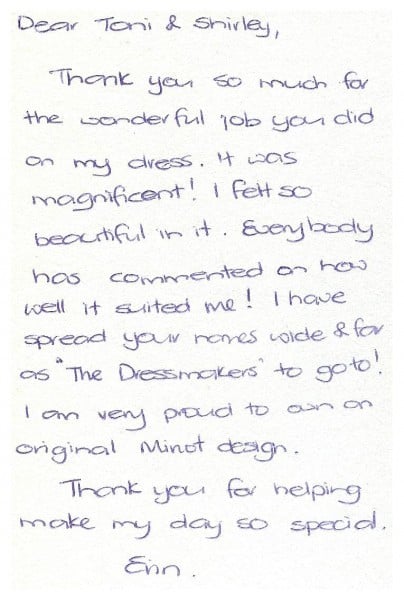 Dear Toni & Shirley,
Thank you so much for
the wonderful job you did
on my dress. It was
magnificent! I felt so
beautiful in it. Everybody
has commented on how
well it suited me! I have
spread your names wide & far
as "The Dressmakers" to go to!
I am very proud to own an
original Minot design.
Thank you for helping
make my day so special.
Erin.